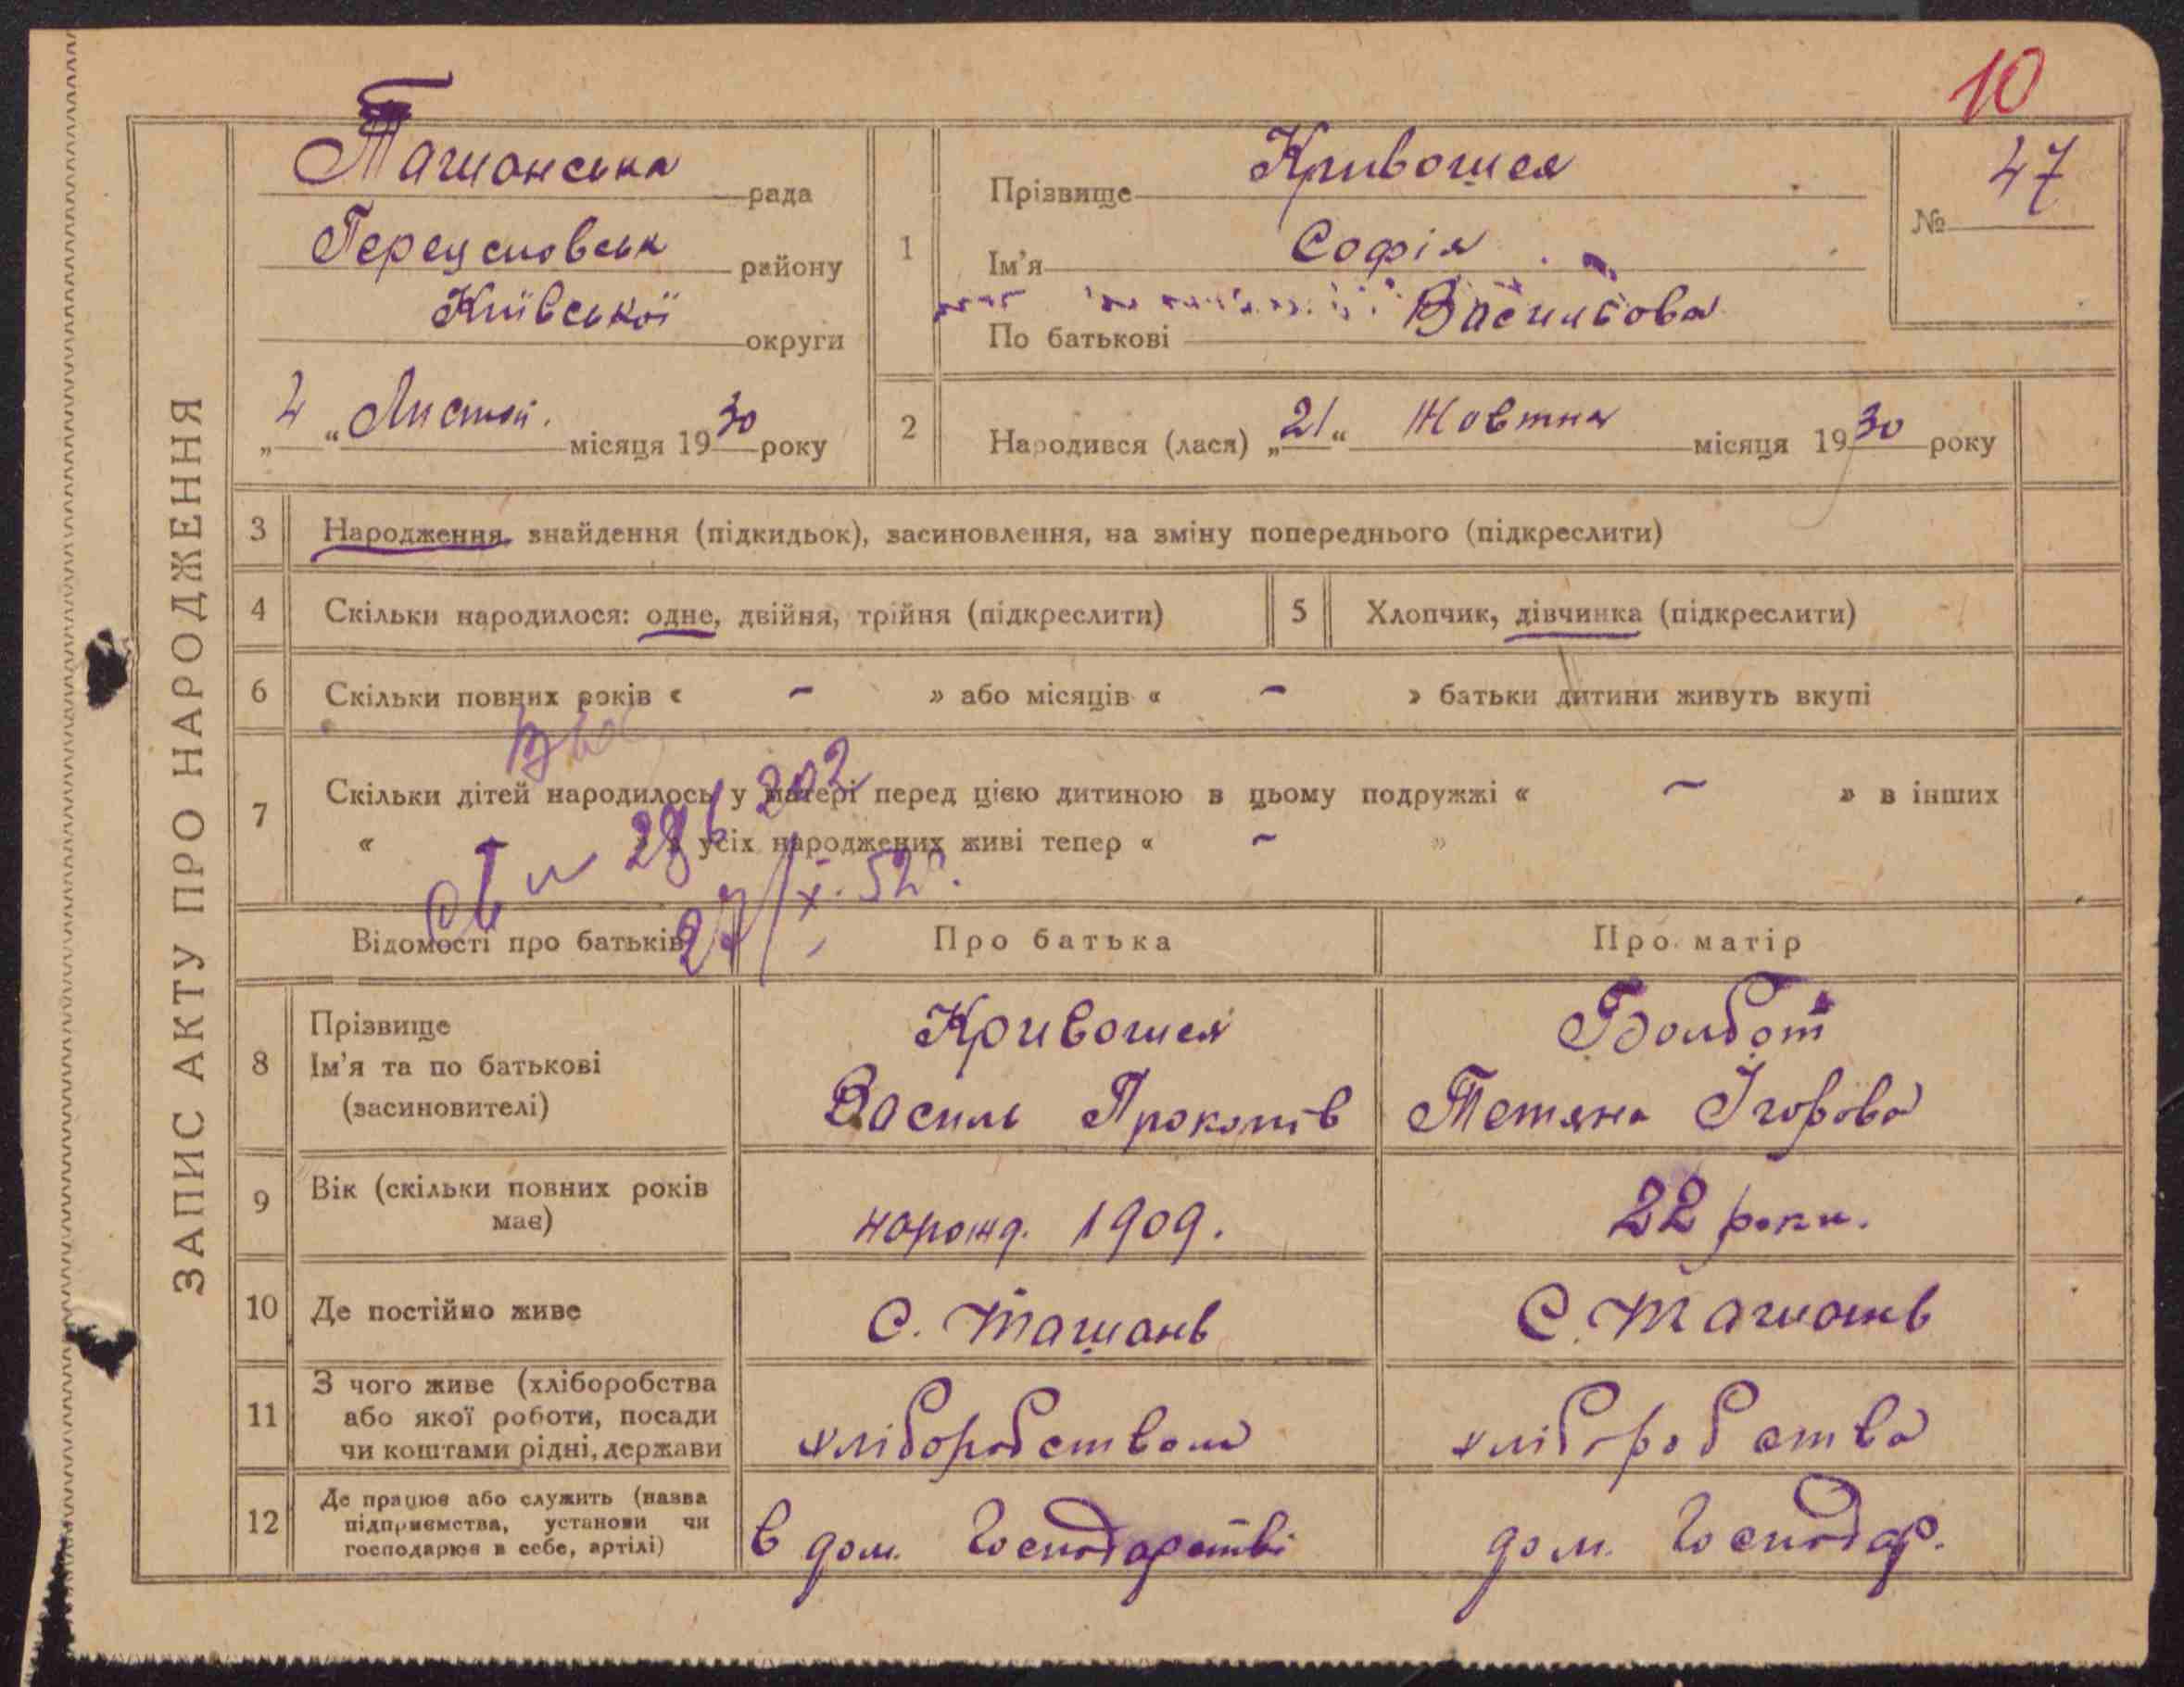 10
Ташанська рада
Переяславськ району
Київської округи
„4“ Листоп. місяця 1930 року
ЗАПИС АКТУ ПРО НАРОДЖЕННЯ
№ 47
1 Прізвище Кривошея
Ім'я Софія
По батькові Васильова
2 Народився (лася) „21“ Жовтня місяця 1930 року
3 Народження, знайдення (підкидьок), засиновлення, на зміну попереднього (підкреслити)
4 Скільки народилося: одне, двійня, трійня (підкреслити)
5 Хлопчик, дівчинка (підкреслити)
6 Скільки повних років « – » або місяців « – » батьки дитини живуть вкупі
7 Скільки дітей народилось у матері перед цією дитиною в цьому подружжі « – » в інших
« » з усіх народжених живі тепер « – »
27/X. 52
Відомості про батьків Про батька Про матір
8 Прізвище Кривошея
Ім'я та по батькові Василь Прокопів Тетяна Ігорова
(засиновителі)
9 Вік (скільки повних років має) нарожд. 1909. 22 роки.
10 Де постійно живе С. Ташань С. Ташань
11 З чого живе (хліборобства
або якої роботи, посади
чи коштами рідні, держави хліборобством хліборобства
12 Де працює або служить (назва
підприємства, установи чи
господарює в себе, артілі) в дом. господарстві дом. господар.